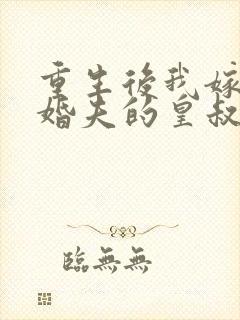 重生後我嫁
婚夫的皇叔
臨無無